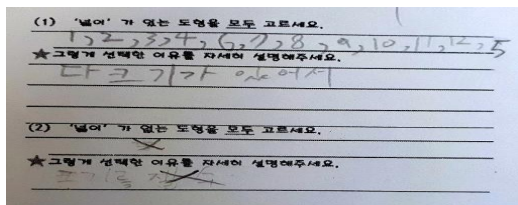 (1) '넓이' 가 있는 도형을 모두 고르세요.
1, 2, 3, 4, 6, 7, 8, 9, 10, 11, 12, 5
★그렇게 선택한 이유를 자세히 설명해주세요.
다 크기가 있어서
(2) '넓이' 가 없는 도형을 모두 고르세요.
X
★그렇게 선택한 이유를 자세히 설명해주세요.
크기를